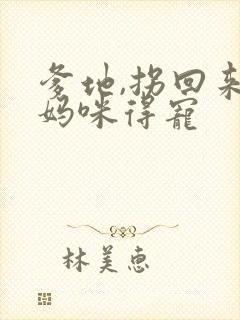 爹地,拐回来
妈咪得宠
林美惠